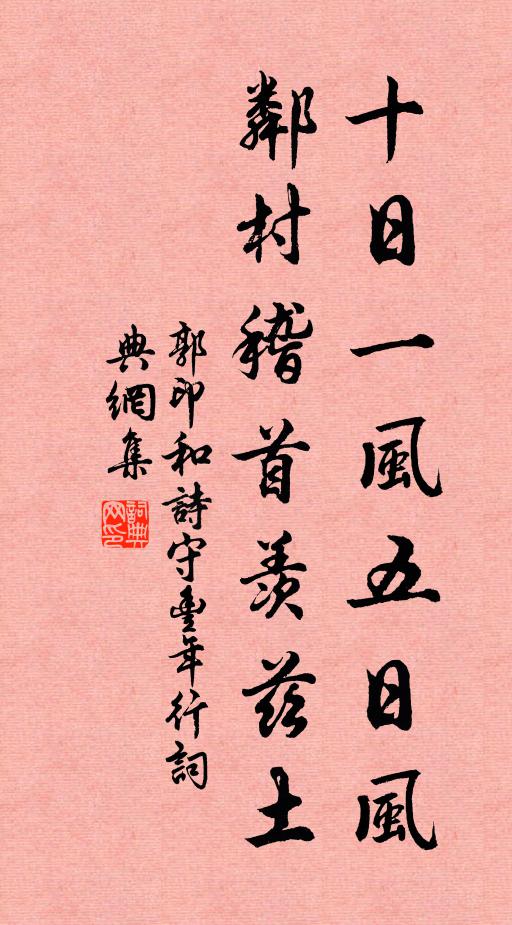 十日一風五日風
鄰村稽首羨茲土
郭印和詩守豊年行詞
典網集
詞典網印